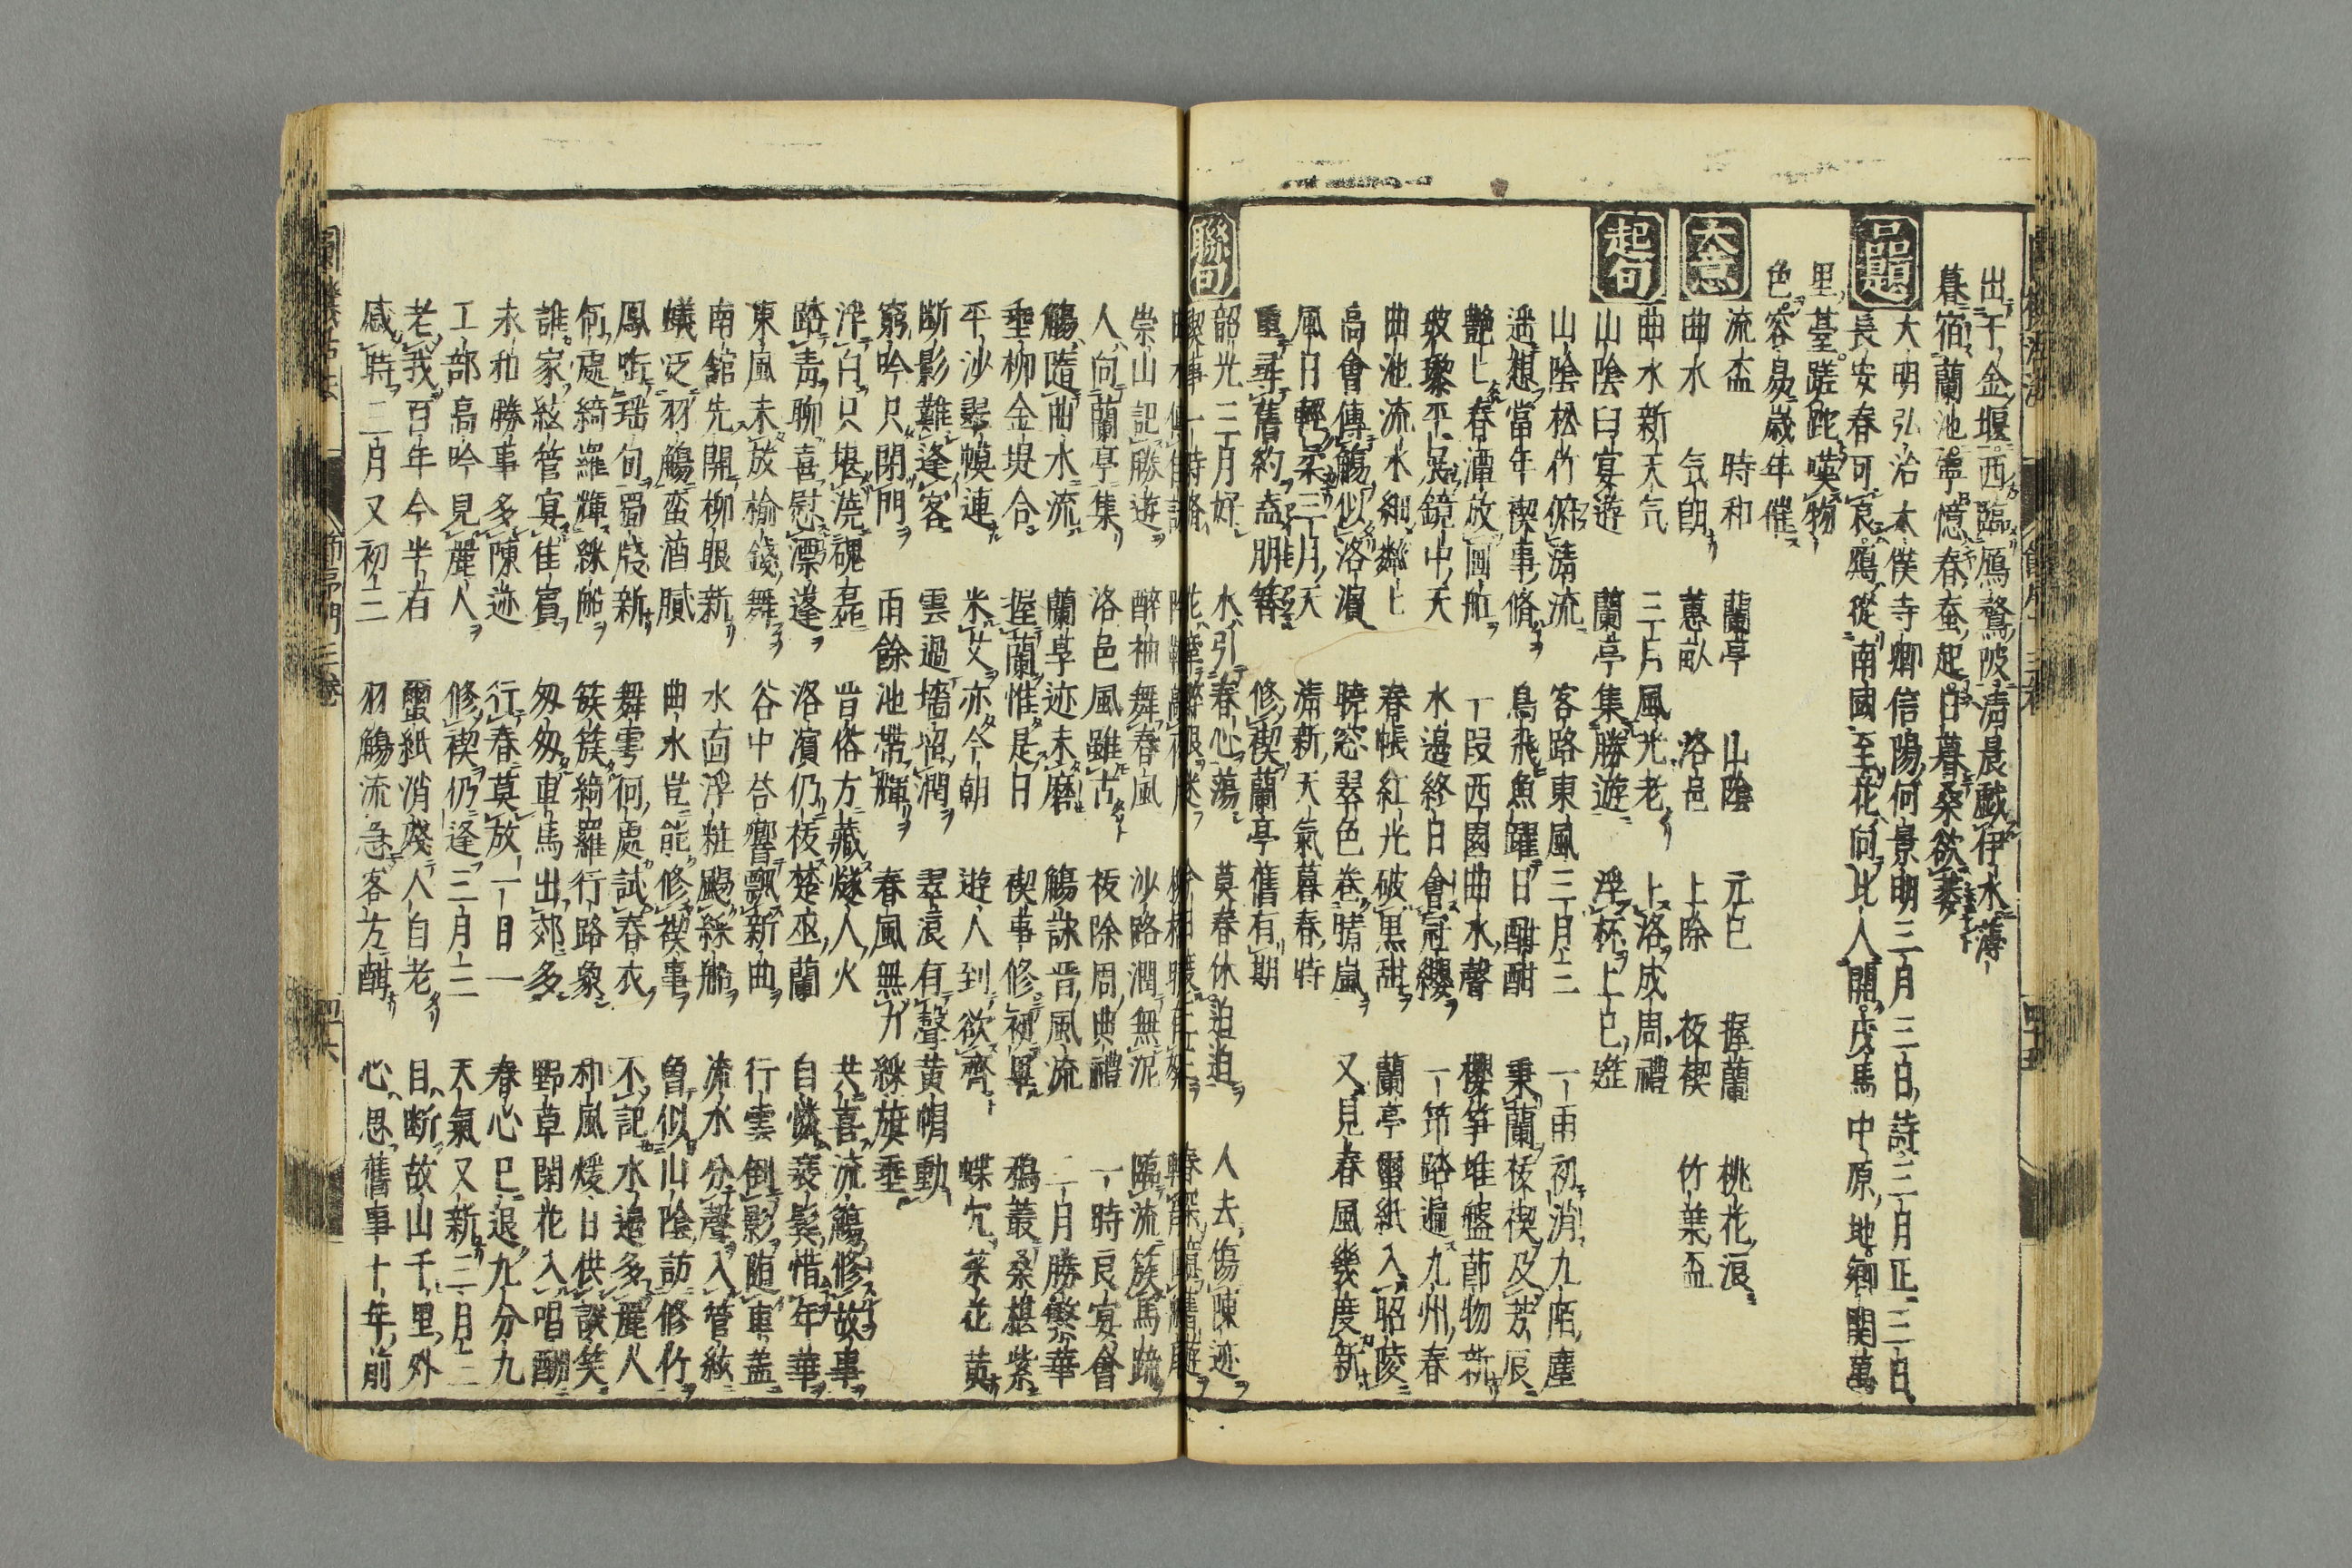 出于金堰西臨鴈鶩陂清晨戲伊水薄
暮宿蘭池寧憶春蚕起日暮桑欲萎
品題
大明弘治太僕寺卿信陽何景明三月三日詩三月正三日
長安春可哀鴈從南國至花向北人開戍馬中原地鄉関萬
里臺蹉跎嘆物
色容易歳年催
大意
流盃 時和 蘭亭 山陰 元巳 握蘭 桃花浪
曲水 気朗 蕙畝 洛邑 上除 祓禊 竹葉盃
起句
曲水新天气 三月風光老 上洛成周禮
山陰曰宴遊 蘭亭集勝遊 浮杯上巳遊
山陰松竹俯清流 客路東風三月三 一雨初消九陌塵
遥想當年禊事脩 鳥飛魚躍日酣酣 秉蘭祓禊及芳辰
艶〻春潭放画舩 一段西園曲水聲 櫻笋堆盤節物新
玻瓈平展鏡中天 水邉終日會冠纓 一笻路遍九州春
曲池流水細鱗〻 春帳紅光破黒甜 蘭亭蠒紙入昭陵
高會傳觴似洛濵 曉窓翠色卷晴嵐 又見春風幾度新
風日輕柔三月天 清新天氣暮春時
重尋舊約盍朋簪 修禊蘭亭舊有期
聯句
韶光三月好 水引春心蕩 莫春休迫迫 人去傷陳迹
崇山記勝遊 醉袖舞春風 沙路潤無泥 臨流簇馬蹄
人向蘭亭集 洛邑風雖古 祓除周典禮 一時良宴會
觴隨曲水流 蘭亭迹未磨 觴詠晋風流 二月勝繁華
垂柳金堤合 握蘭惟是日 禊事修初畢 鴉叢桑椹紫
平沙翠幙連 米艾亦今朝 遊人到欲齊 蝶宂菜花黄
断影難逢客 雲過墻猶潤 翠浪有聲黄帽動
窮吟只閉門 雨餘池帶輝 春風無力綵旗垂
浮白只堪澆磈磊 昔俗方藏燧人火 共喜流觴修故事
踏青聊喜慰漂蓬 洛濵仍祓楚巫蘭 自憐衰髮惜年華
東風未放榆錢舞 谷中答響飄新曲 行雲倒影随車盖
南舘先開柳眼新 水面浮粧颺綵船 流水分聲入管絃
蟻泛羽觴蛮酒膩 曲水豈能修禊事 曽似山陰訪修竹
鳳㗸瑶句蜀牋新 舞雩何處試春衣 不記水邉多麗人
何處綺羅輝綵船 簇簇綺羅行路衆 和風煖日供談笑
誰家絃管宴佳賓 匆匆車馬出郊多 野草閑花入唱酬
未和勝事多陳迹 行春莫放一日一 春心已退九分九
工部高吟見麗人 修禊仍逢三月三 天氣又新三月三
老我百年今半右 蠒紙消殘人自老 目断故山千里外
感時二月又初三 羽觴流急客方酣 心思舊事十年前